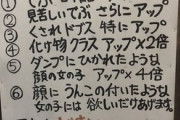 ② 見苦しいでぶ さらに アップ
③ くされドブス 特に アップ
④ 化け物クラス アップ×2倍
⑤ ダンプにひかれたような
顔の女の子 アップ×4倍
⑥ 顔にうんこの付いたような
女の子には 欲しいだけあげます。